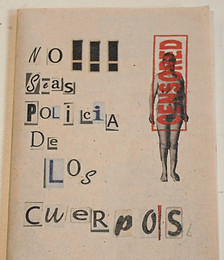 NO!!!
Seas
POLICIA
De
LOS
CuerpOS
CENSORED